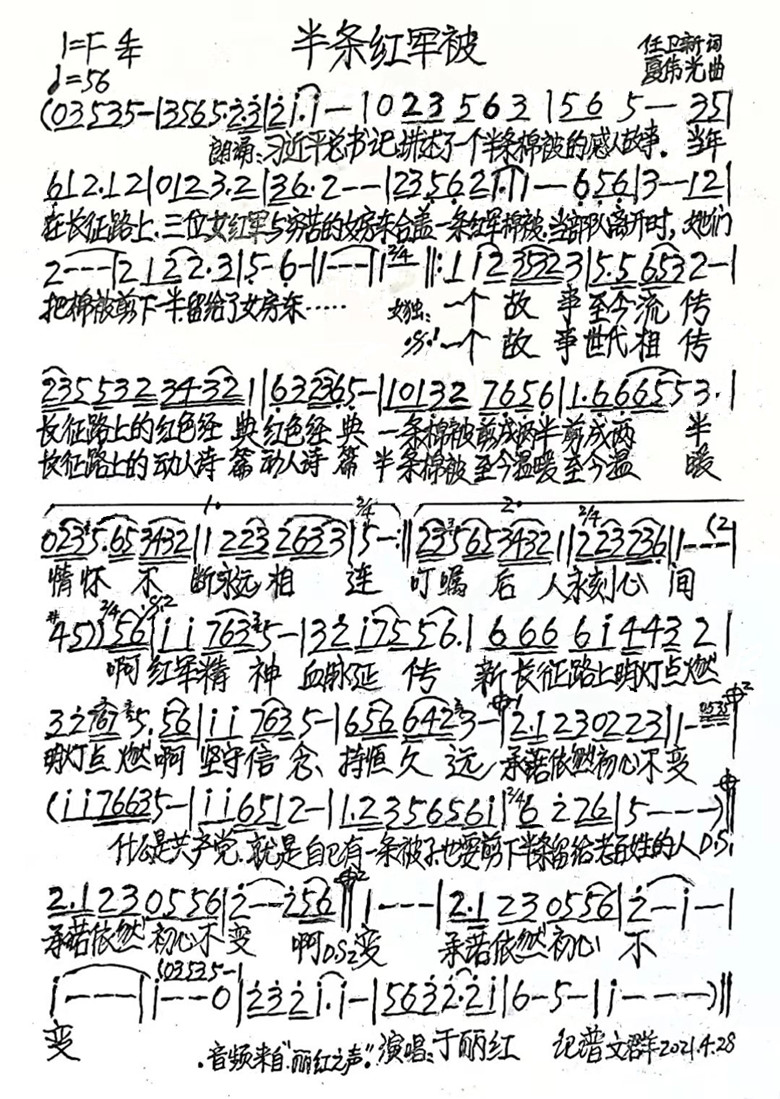 1=F 4/4 半条红军被 任卫新词
♩=56 夏伟光曲
(03535-|3565·2·3|2i·i-|0 23 563|56 5-35|
朗诵:习近平总书记,讲述了一个半条棉被的感人故事。当年
612·12|0123·2|36·2--|23562i·i|--656|3--12|
在长征路上,三位女红军与穷苦的女房东合盖一条红军棉被,当部队离开时,她们
2---|2122·3|5-6-|1---|1 2/4 ‖:11235323|5·56532-|
把棉被剪下一半留给了女房东…… 女独:一个故事至今流传
D.S.1一个故事世代相传
235532 34321|632365-|10132 7656|1·6665 53·|
长征路上的红色经典红色经典 一条棉被剪成两半剪成两半
长征路上的动人诗篇动人诗篇 半条棉被至今温暖至今温暖
1. 2/4 2. 2/4
0235·653432|1223 2633|5-:‖235653432 1|2232 36|1---(2
情怀不断永远相连 叮嘱后人永刻心间
#45)) 2/4 56|ii7635-|32i7556·|6666i4432|
啊红军精神血脉延传 新长征路上明灯点燃
32767 5·56|ii7635-|6566423-|2·12302 23|1-- 0535
明灯点燃啊 坚守信念、持恒久远 承诺依然初心不变
(ii76635-|ii6512-|1·2356561|2/4 6 226|5---)‖
什么是共产党,就是自己有一条被子,也要剪下半条留给老百姓的人 D.S.1
2·1230556|2--256‖1---|2·1230556|2-i-|
承诺依然初心不变 啊D.S.2变 承诺依然初心不
(03535-|
i---|i--0|232i·i-|5632·2i|6-5-|i---)‖
变
·音频来自“丽红之声”。演唱:于丽红 记谱文群2021.4.28